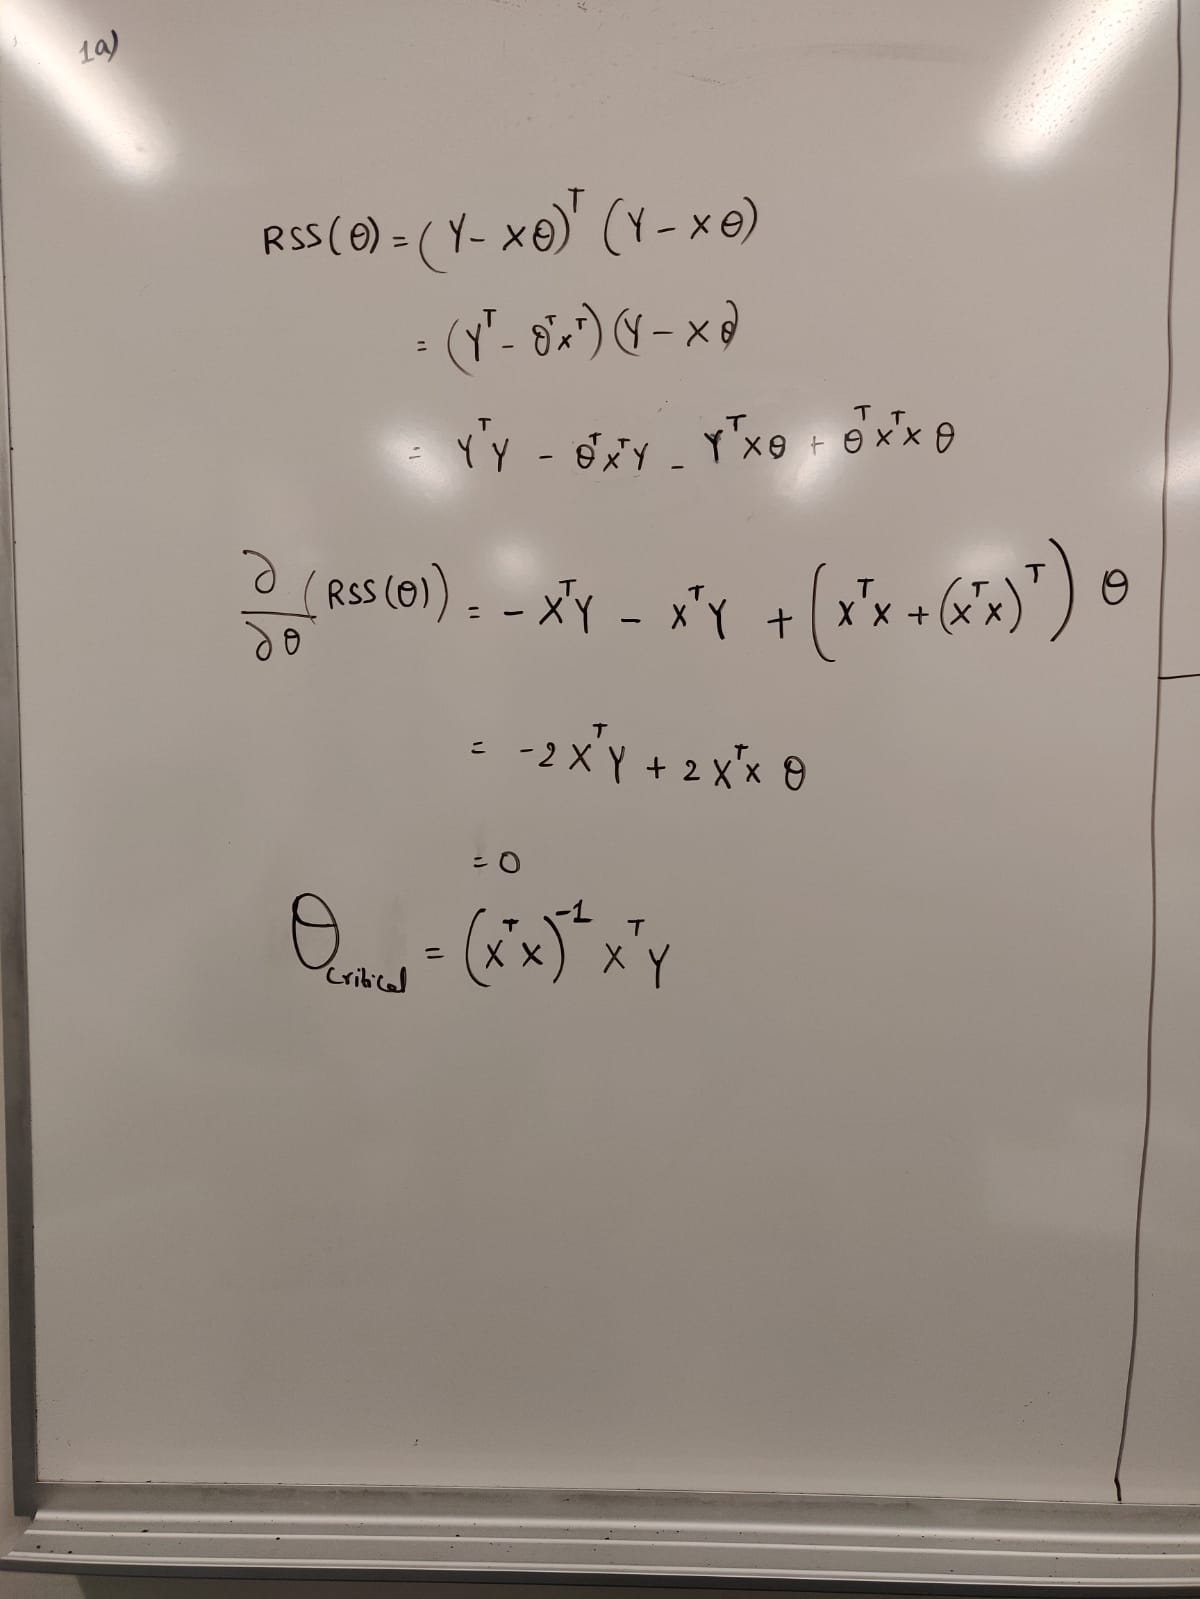 1a)
RSS(θ) = (Y - Xθ)ᵀ (Y - Xθ)
= (Yᵀ - θᵀXᵀ)(Y - Xθ)
= YᵀY - θᵀXᵀY - YᵀXθ + θᵀXᵀXθ
∂/∂θ (RSS(θ)) = - XᵀY - XᵀY + (XᵀX + (XᵀX)ᵀ) θ
= -2XᵀY + 2XᵀX θ
= 0
θ_critical = (XᵀX)⁻¹ XᵀY